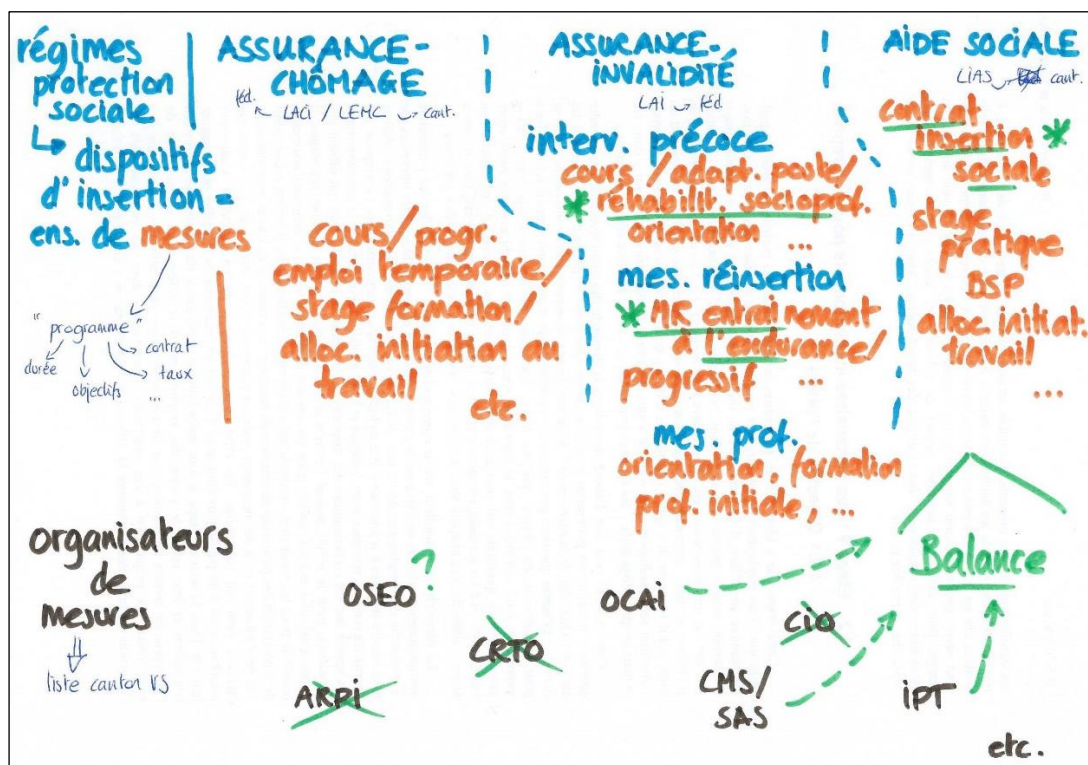 régimes
protection
sociale
↳ dispositifs
d'insertion =
ens. de mesures
"programme"
durée
objectifs
contrat
taux
...
ASSURANCE-
CHÔMAGE
féd. ← LACI / LEMC → cant.
cours/progr.
emploi temporaire/
stage formation/
alloc. initiation au
travail
etc.
ASSURANCE-
INVALIDITÉ
LAI → féd
interv. précoce
cours /adapt. poste/
* réhabilit. socioprof.
orientation ...
mes. réinsertion
* MR entrainement
à l'endurance/
progressif ...
mes. prof.
orientation, formation
prof. initiale, ...
AIDE SOCIALE
LIAS → cant.
contrat
insertion *
sociale
stage
pratique
BSP
alloc. initiat.
travail
...
organisateurs
de
mesures
⇓
liste canton VS
OSEO ?
ARPI
CRTO
OCAI
CIO
CMS/
SAS
Balance
IPT
etc.